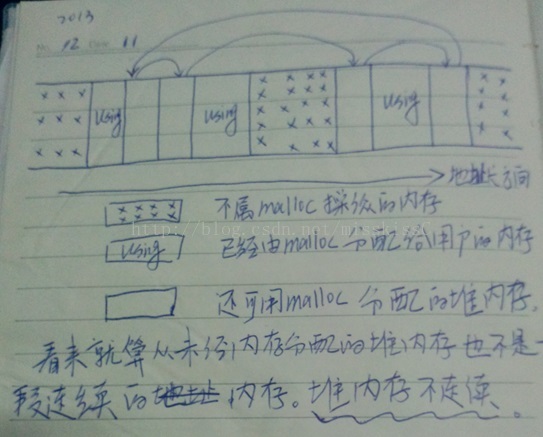 2013
No. 12 Date 11
using using using
地址长方向
不属malloc 操作的内存
http://blog.csdn.net/
using 已经由malloc 分配给用户的内存
还可用malloc 分配的堆内存.
看来就算从未经内存分配的堆内存也不是一
段连续的地址内存。堆内存不连续。